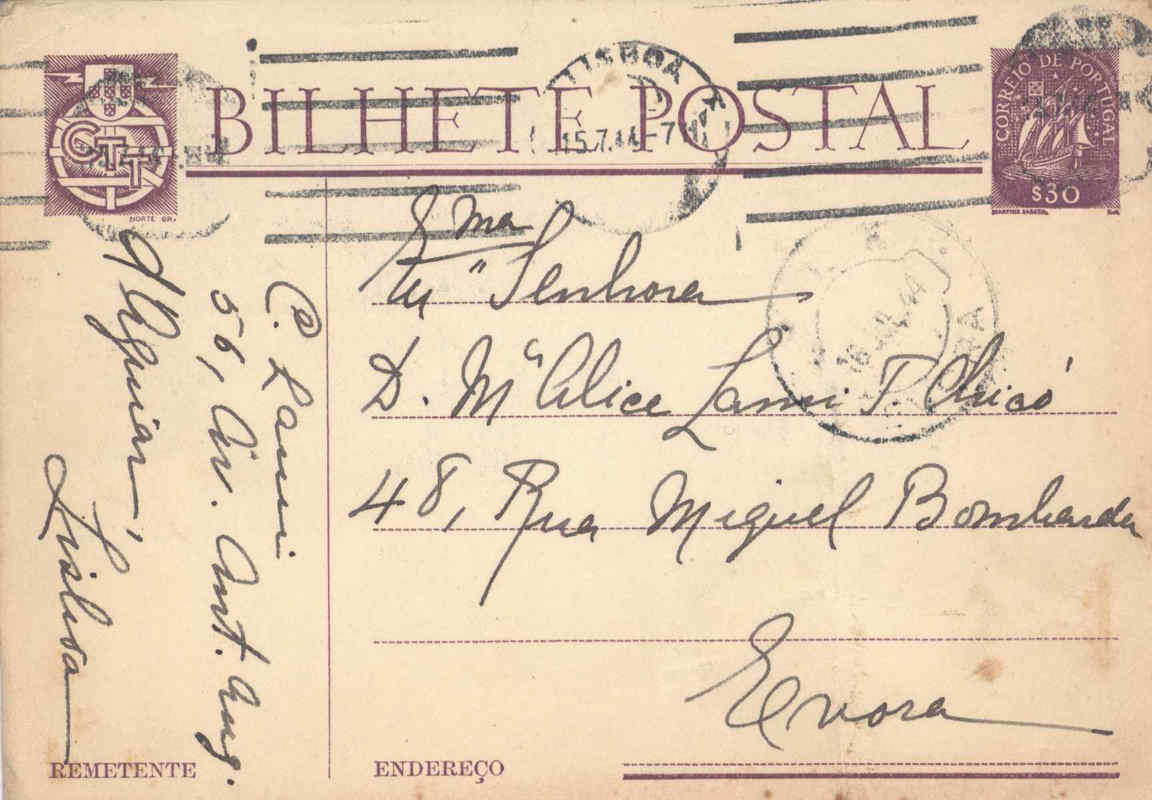 BILHETE POSTAL
CTT
NORTE GR.
CORREIO DE PORTUGAL
$30
LISBOA
15.7.44-7
16 JUL. 44
Ex ma
Senhora
D. Mª Alice Lami T. Chicó
48, Rua Miguel Bombarda
Evora
C. Lami
56, Av. Ant. Aug.
d'Aguiar,
Lisboa
REMETENTE
ENDEREÇO